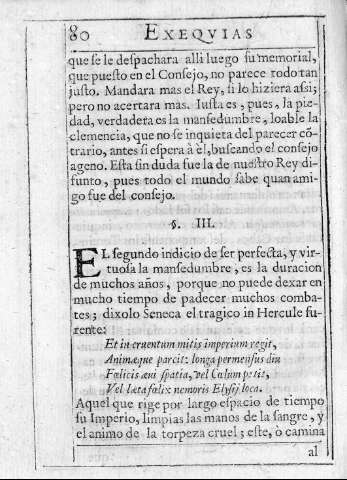 80 EXEQVIAS
que se le despachara alli luego su memorial,
que puesto en el Consejo, no parece todo tan
justo. Mandara mas el Rey, si lo hiziera assi;
pero no acertara mas. Iusta es, pues, la pie-
dad, verdadera es la mansedumbre, loable la
clemencia, que no se inquieta del parecer cõ-
trario, antes si espera à èl, buscando el consejo
ageno. Esta sin duda fue la de nuestro Rey di-
funto, pues todo el mundo sabe quan ami-
go fue del consejo.
§. III.
EL segundo indicio de ser perfecta, y vir-
tuosa la mansedumbre, es la duracion
de muchos años, porque no puede dexar en
mucho tiempo de padecer muchos comba-
tes; dixolo Seneca el tragico in Hercule fu-
rente:
Et in cruentum mitis imperium regit,
Animæque parcit: longa permensus diu
Fœlicis æui spatia, vel Cælum petit,
Vel læta fœlix nemoris Elysij loca.
Aquel que rige por largo espacio de tiempo
su Imperio, limpias las manos de la sangre, y
el animo de la torpeza cruel; este, ò camina
al